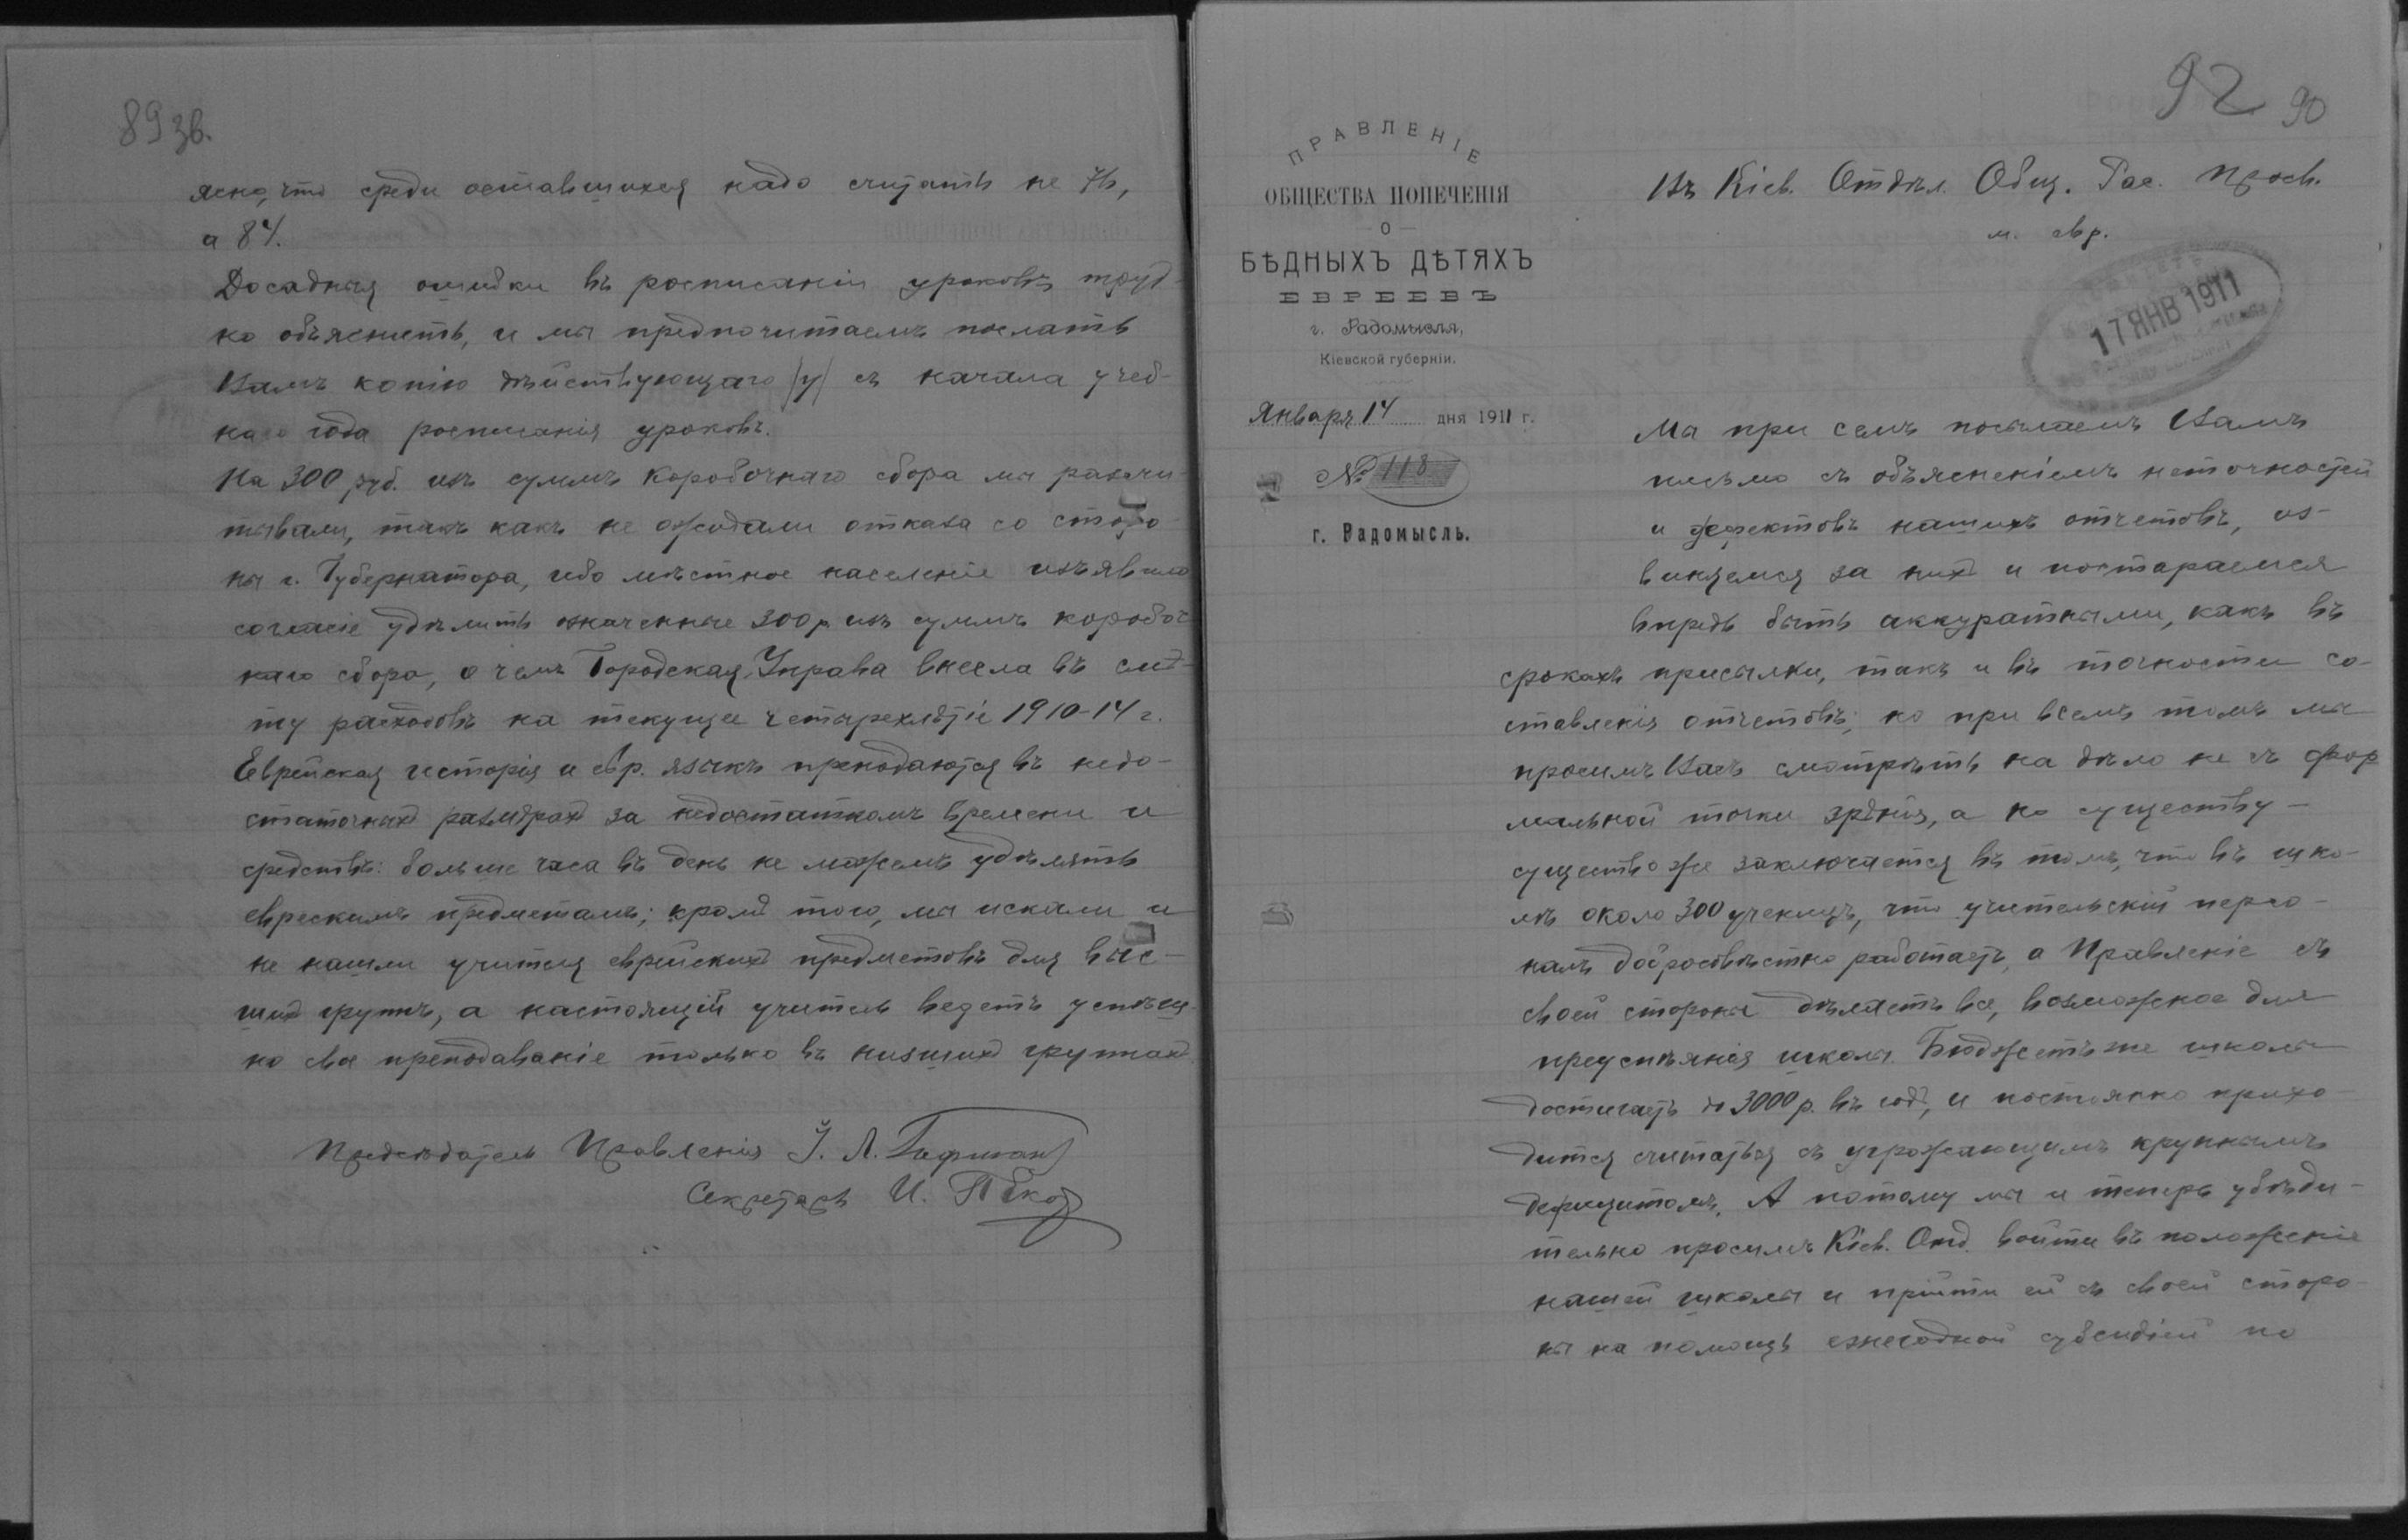 89 зв.
ясно, что среди оставшихся надо считать не 76,
а 84.
Досадныя ошибки въ росписаніи уроковъ труд-
но объяснить, и мы предпочитаемъ послать
Вамъ копію дѣйствующаго /у/ съ начала учеб-
наго года росписанія уроковъ.
На 300 руб. изъ суммъ коробочнаго сбора мы разсчи-
тывали, такъ какъ не ожидали отказа со сторо-
ны г. Губернатора, ибо мѣстное населеніе изъявило
согласіе удѣлить означенные 300 р. изъ суммъ коробоч-
наго сбора, о чемъ Городская Управа внесла въ смѣ-
ту расходовъ на текущее четырехлѣтіе 1910-14 г.
Еврейская исторія и евр. языкъ преподаются въ недо-
статочныхъ размѣрахъ за недостаткомъ времени и
средствъ: больше часа въ день не можемъ удѣлять
еврескимъ предметамъ; кромѣ того, мы искали и
не нашли учителя еврейскихъ предметовъ для выс-
шихъ группъ, а настоящій учитель ведетъ успѣш-
но свое преподаваніе только въ низшихъ группахъ
Предсѣдатель Правленія І. Л. Гофман
Секретарь И.
92 90
ПРАВЛЕНІЕ
ОБЩЕСТВА ПОПЕЧЕНІЯ
О
БѢДНЫХЪ ДѢТЯХЪ
ЕВРЕЕВЪ
г. Радомысля,
Кіевской губерніи.
Января 14 дня 1911 г.
№ 118
г. Радомысль.
Въ Кіев. Отдѣл. Общ. Рас. Просв.
м. евр.
17 ЯНВ 1911
Мы при семъ посылаемъ Вамъ
письмо съ объясненіемъ неточностей
и дефектовъ нашихъ отчетовъ, из-
виняемся за нихъ и постараемся
впредь быть аккуратными, какъ въ
срокахъ присылки, такъ и въ точности со-
ставленія отчетовъ; но при всемъ томъ мы
просимъ Васъ смотрѣть на дѣло не съ фор
мальной точки зрѣнія, а по существу –
существо же заключается въ томъ, что въ шко-
лѣ около 300 ученицъ, что учительскій персо-
налъ добросовѣстно работаетъ, а Правленіе съ
своей стороны дѣлаетъ все, возможное для
преуспѣянія школы. Бюджетъ же школы
достигаетъ до 3000 р. въ годъ, и постоянно прихо
дится считаться съ угрожающимъ крупнымъ
дефицитомъ. А потому мы и теперь убѣди-
тельно просимъ Кіев. Отд. войти въ положеніе
нашей школы и прійти ей съ своей сторо-
ны на помощь ежегодной субсидіей по